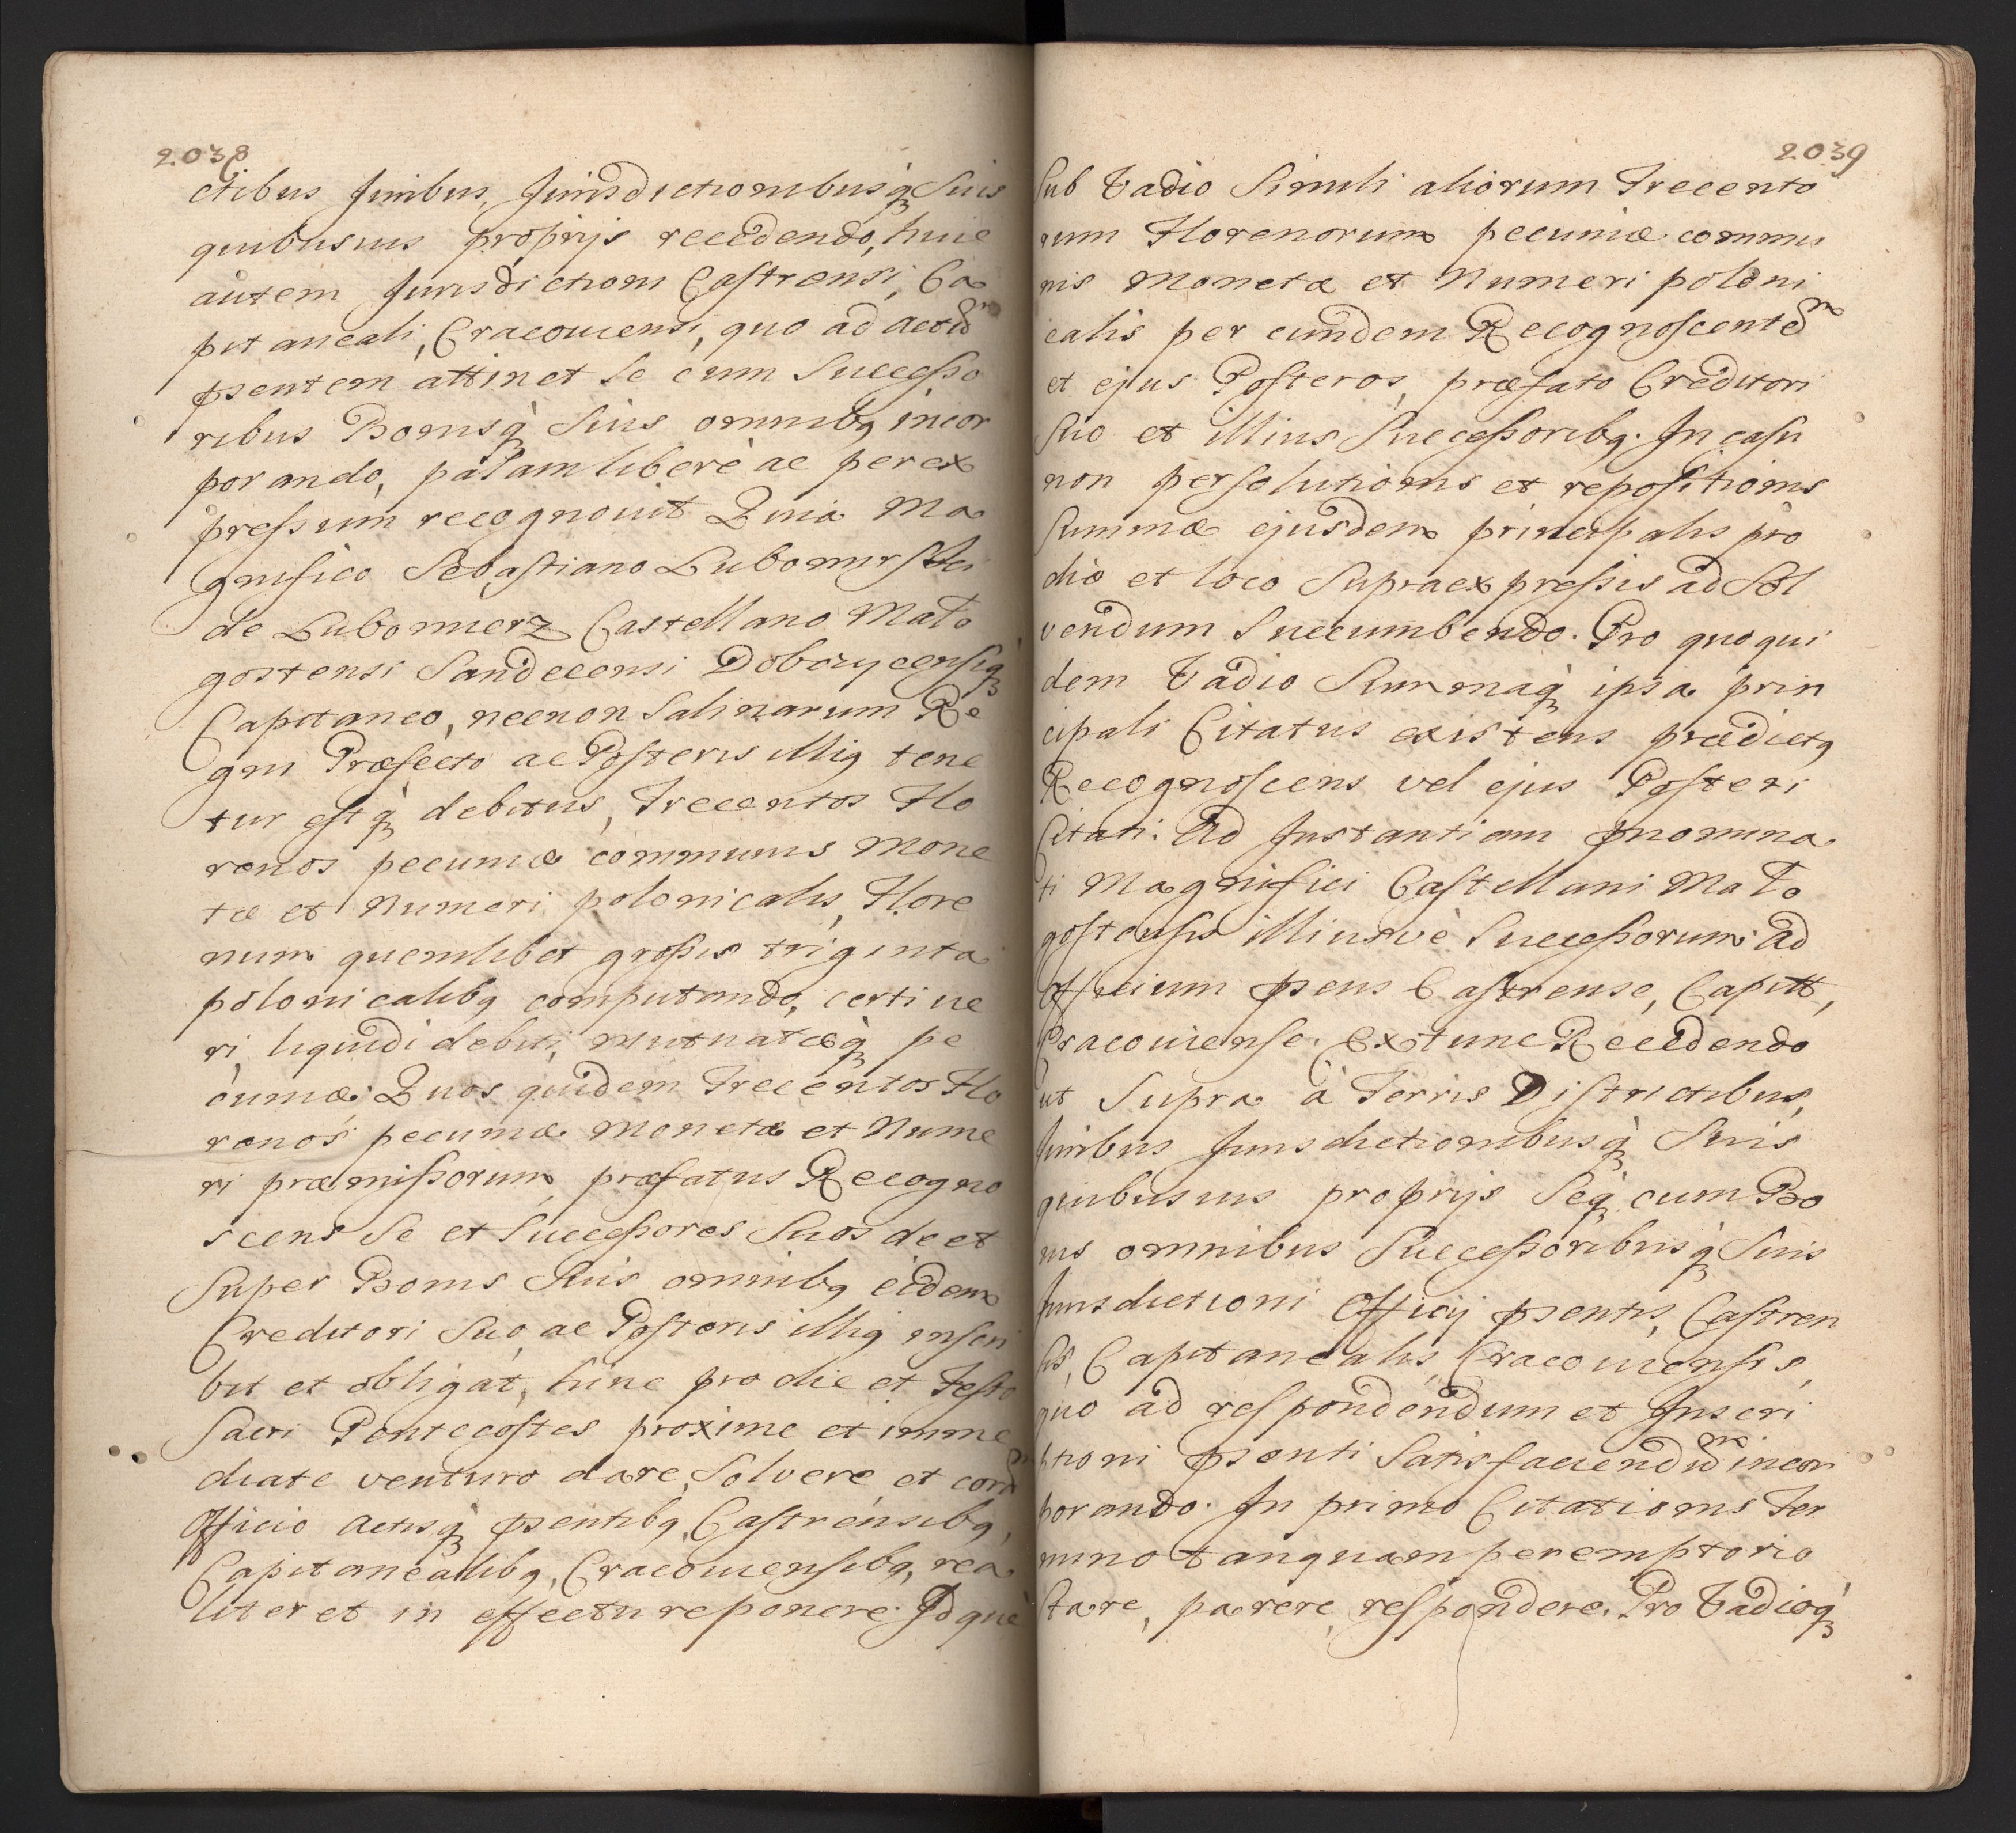 2038
ctibus Juribus, Jurisdictionibusq̀ Suis
quibusuis proprijs recedendo, huic
autem Jurisdictioni Castrensi, Ca
pitaneali, Cracouiensi, quo ad actũ
psentem attinet se cum Successo
ribus Bonisq̀ Suis omnibq incor
porando, palam liberè ac per ex
pressum recognouit Quia Ma
gnifico Sebastiano Lubomirskei
de Lubomierz Castellano Mało
gostensi Sandecensi Dobczycensiq̀
Capitaneo, necnon Salinarum Re
gni Præfecto ac Posteris illiq tene
tur estq̀ debitus, Trecentos Flo
renos pecuniæ communis Mone
tæ et Numeri polonicalis, Flore
num quemlibet grossis triginta
polonicalibq computando, certi ue
ri liquidi debiti, mutuatæq̀ pe
cuniæ: Quos quidem Trecentos Flo
renos pecuniæ Monetæ et Nume
ri præmissorum, præfatus Recogno
scens Se et Successores Suos de et
Super Bonis Suis omnibq eidem
Creditori Suo, ac Posteris illiq inscri
bit et obligat, hinc pro die et Festo
Sacri Pentecostes proxime et imme
diate venturo dare, Solvere et corã
Officio Actisq̀ psentibq, Castrensibq,
Capitanealibq, Cracouiensibq, rea
liter et in effectu reponere. Idquè
2039
Sub Vadio Simili aliorum Trecento
rum Florenorum pecuniæ commu
nis Monetæ et Numeri poloni
calis per eundem Recognoscentẽ
et ejus Posteros, præfato Creditori
Suo et illius Successoribq. In casu
non persolutionis et repositionis
Summæ ejusdem principalis pro
die et loco Supraexpressis ad Sol
vendum Succumbendo. Pro quoqui
dem Vadio Summaq̀ ipsa prin
cipali Citatus existens prædictq
Recognoscens vel ejus Posteri
Citati. Ad Instantiam pnomina
ti Magnifici Castellani Mało
gostensis illiusvè Successorum ad
Officium psens Castrense, Capitt,
Cracouiense. Extunc Recedendo
ut Supra à Terris Districtibus,
Juribus Jurisdictionibusq̀ Suis
quibusuis proprijs Seq̀ cum Bo
nis omnibus Successoribusq̀ Suis
Jurisdictioni Officij psentis, Castren
sis, Capitanealis, Cracouiensis,
quo ad respondendum et Inscri
ptioni psenti Satisfaciendũ incor
porando. In primo Citationis Ter
mino tanquam peremptorio
Stare, parere, respondere. Pro Vadioq̀